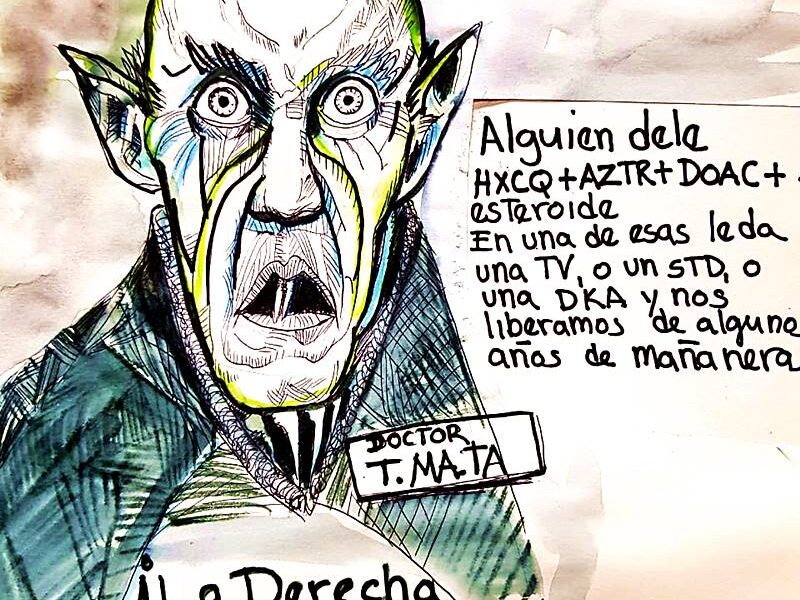 Alguien dele
HXCQ+AZTR+DOAC+
esteroide
En una de esas le da
una TV, o un STD, o
una DKA y nos
liberamos de alguno
años de mañanera
DOCTOR
T. MA.TA
¡La Derecha